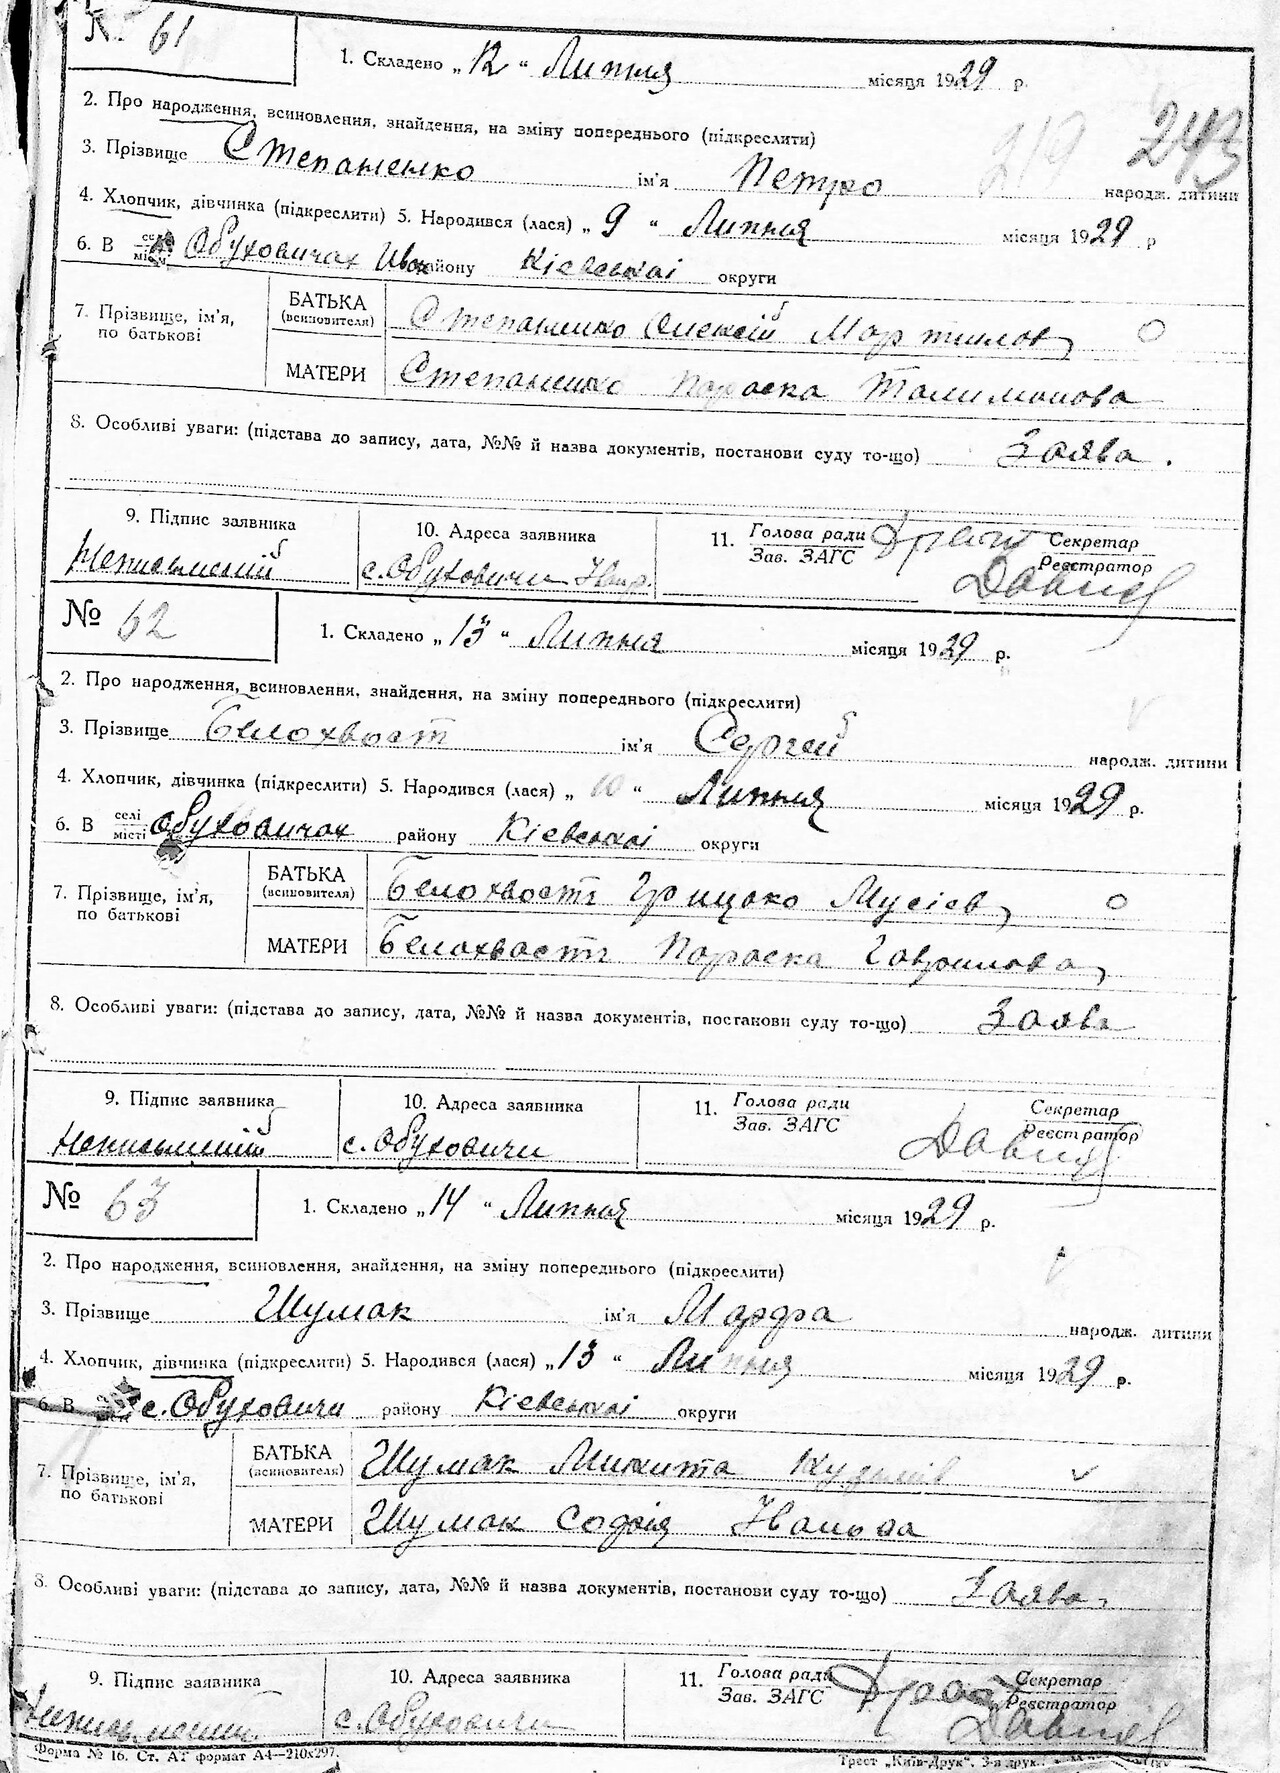 № 61
1. Складено „ 12 “ Липня місяця 1929 р.
2. Про народження, всиновлення, знайдення, на зміну попереднього (підкреслити)
219 243
3. Прізвище Степаненко ім'я Петро народж. дитини
4. Хлопчик, дівчинка (підкреслити) 5. Народився (лася) „ 9 “ Липня місяця 1929 р
6. В Обуховичах Іван району Кіевськоі округи
7. Прізвище, ім'я, по батькові
БАТЬКА (всиновителя) Степаненко Олексій
МАТЕРИ Степаненко Параска
8. Особливі уваги: (підстава до запису, дата, №№ й назва документів, постанови суду то-що) Заява.
9. Підпис заявника 10. Адреса заявника 11. Голова ради Зав. ЗАГС Секретар Реєстратор
Неписьмений с. Обуховичи
№ 62
1. Складено „ 13 “ Липня місяця 1929 р.
2. Про народження, всиновлення, знайдення, на зміну попереднього (підкреслити)
3. Прізвище Белохвост ім'я Сергей народж. дитини
4. Хлопчик, дівчинка (підкреслити) 5. Народився (лася) „ 10 “ Липня місяця 1929 р.
6. В селі місті Обуховичах району Кіевськоі округи
7. Прізвище, ім'я, по батькові
БАТЬКА (всиновителя) Белохвост Грицько Мусіев
МАТЕРИ Белохвост Параска Гаврилова
8. Особливі уваги: (підстава до запису, дата, №№ й назва документів, постанови суду то-що) Заява
9. Підпис заявника 10. Адреса заявника 11. Голова ради Зав. ЗАГС Секретар Реєстратор
Неписьмений с. Обуховичи
№ 63
1. Складено „ 14 “ Липня місяця 1929 р.
2. Про народження, всиновлення, знайдення, на зміну попереднього (підкреслити)
3. Прізвище Шумак ім'я Марфа народж. дитини
4. Хлопчик, дівчинка (підкреслити) 5. Народився (лася) „ 13 “ Липня місяця 1929 р.
6. В с. Обуховичи району Кіевськоі округи
7. Прізвище, ім'я, по батькові
БАТЬКА (всиновителя) Шумак Микита
МАТЕРИ Шумак Софія Іванова
8. Особливі уваги: (підстава до запису, дата, №№ й назва документів, постанови суду то-що) Заява
9. Підпис заявника 10. Адреса заявника 11. Голова ради Зав. ЗАГС Секретар Реєстратор
Неписьмений с. Обуховичи
Форма № 16. Ст. АТ формат А4—210х297. Трест „Київ-Друк“. 3-я друк.